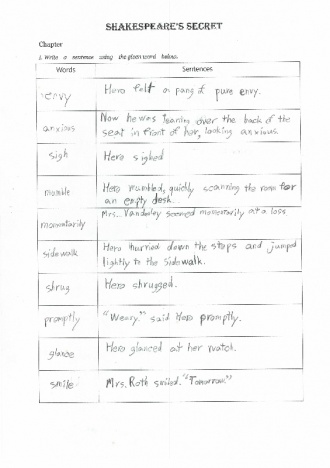 SHAKESPEARE'S SECRET
Chapter
1. Write a sentence using the given word below.
Words Sentences
envy Hero felt a pang of pure envy.
anxious Now he was leaning over the back of the
seat in front of her, looking anxious.
sigh Hero sighed
mumble Hero mumbled, quickly scanning the room for
an empty desk.
momentarily Mrs. Vanderley seemed momentarily at a loss
sidewalk Hero hurried down the steps and jumped
lightly to the sidewalk.
shrug Hero shrugged.
promptly "Weary." said Hero promptly.
glance Hero glanced at her watch.
smile Mrs. Roth smiled. "Tomorrow."